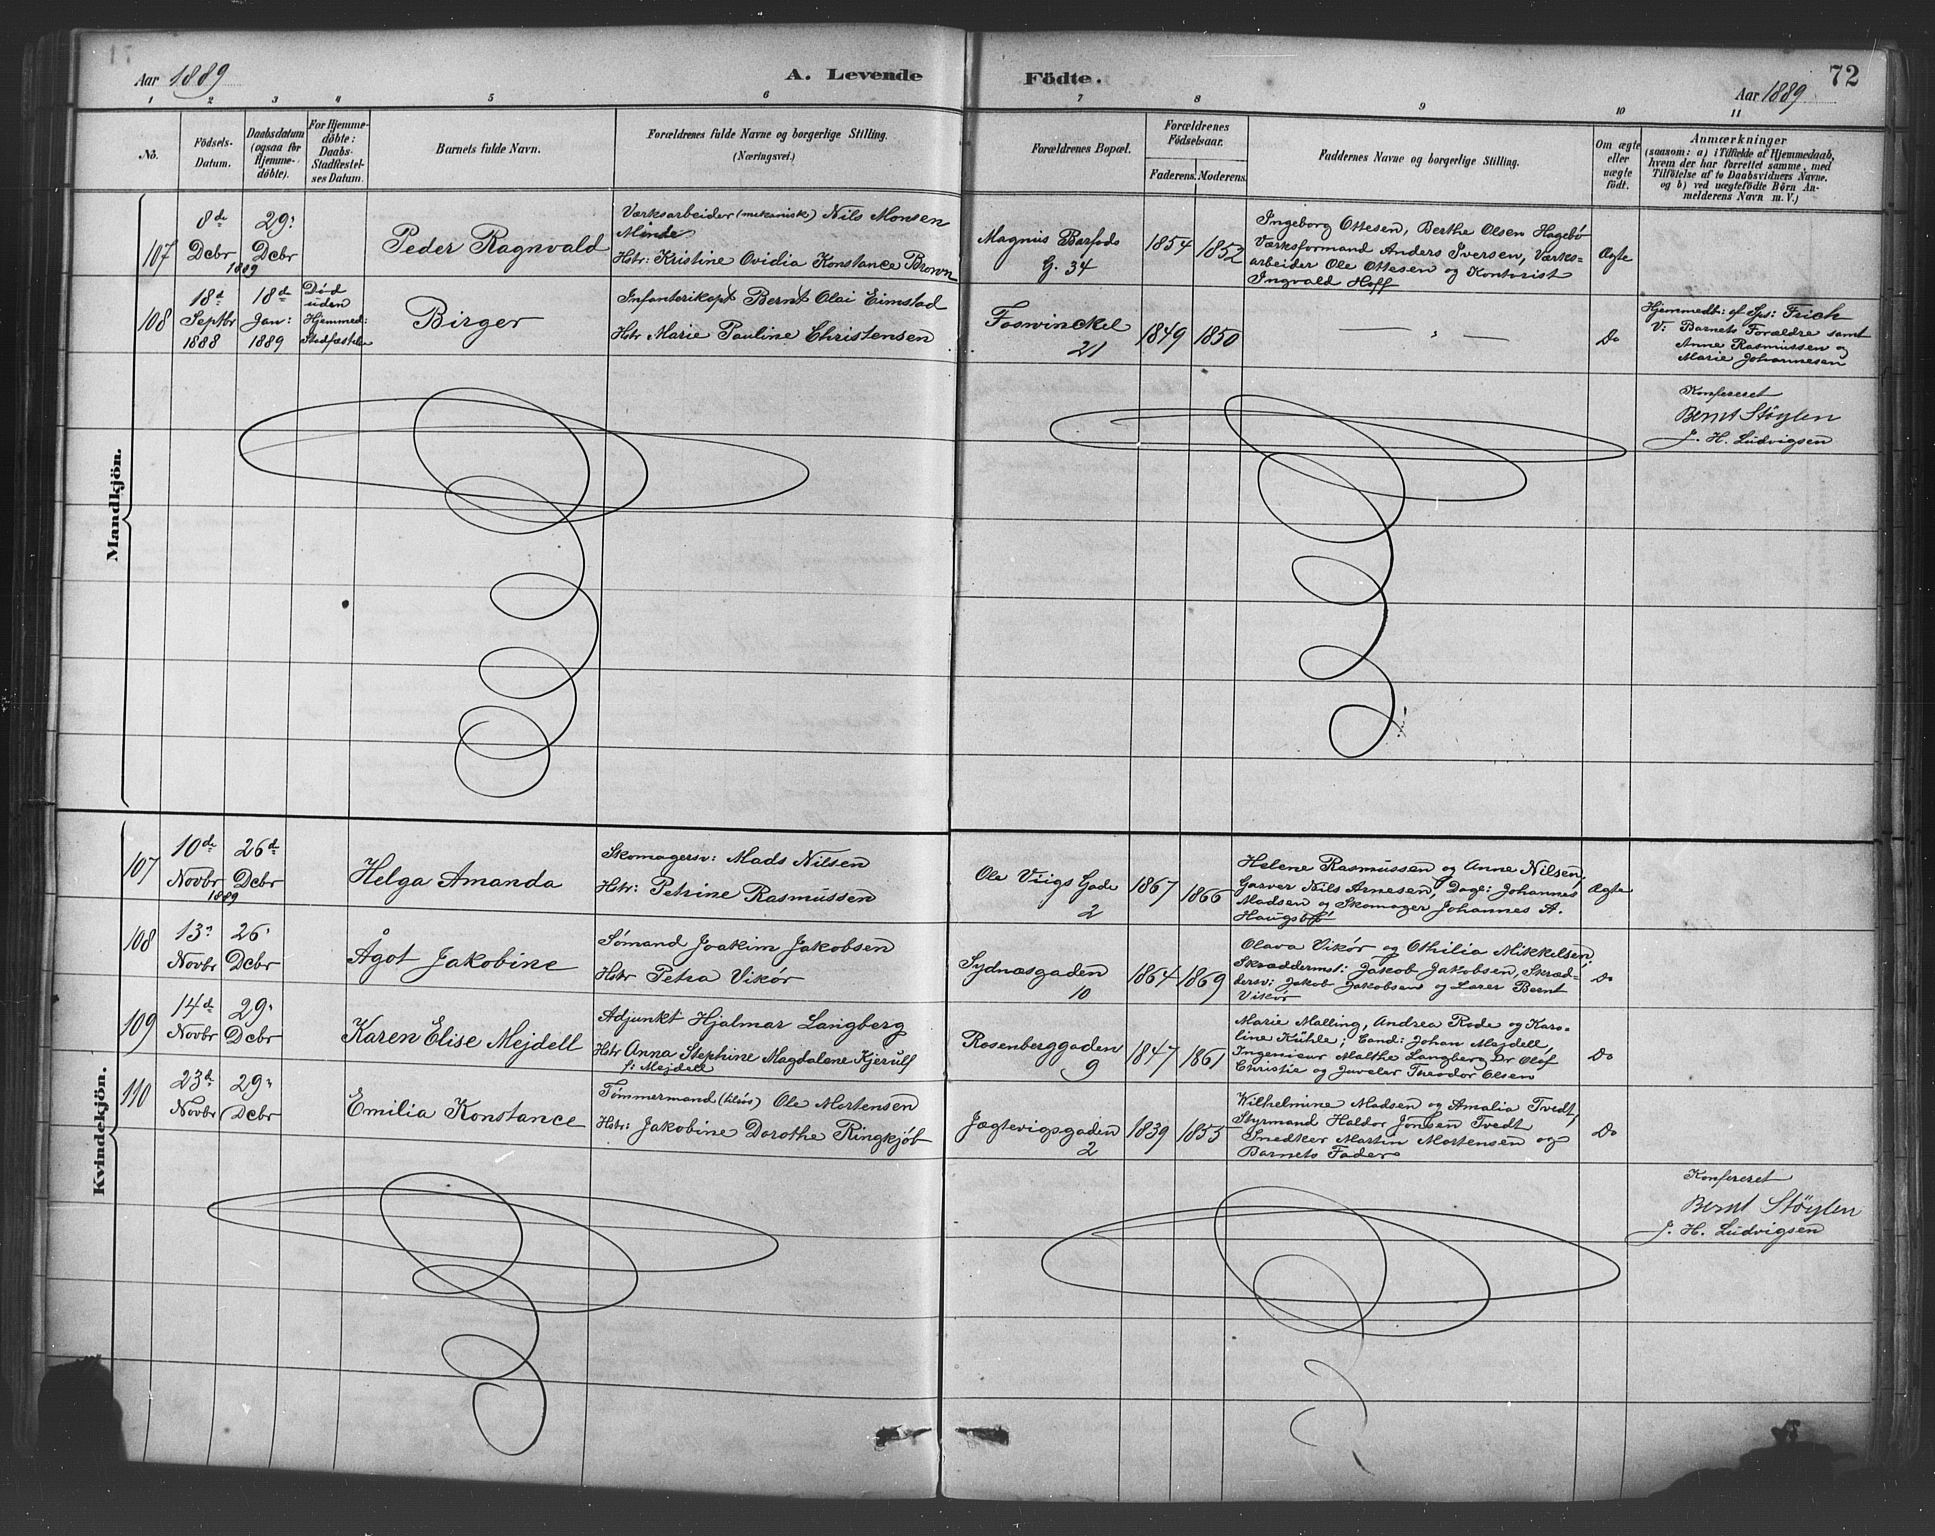 Aar 1889
A. Levende Födte.
Aar 1889
72
1 2 3 4 5 6 7 8 9 10 11
No.
Födsels-
Datum.
Daabsdatum
(ogsaa för
Hjemme-
döbte).
For Hjemme-
döbte:
Daabs-
Stadfæstel-
ses Datum.
Barnets fulde Navn.
Forældrenes fulde Navne og borgerlige Stilling.
(Næringsvei.)
Forældrenes Bopæl.
Forældrenes
Födselsaar.
Faderens. Moderens.
Faddernes Navne og borgerlige Stilling.
Om ægte
eller
uægte
födt.
Anmærkninger
(saasom: a) i Tilfælde af Hjemmedaab,
hvem der har forrettet samme, med
Tilföielse af to Daabsvidners Navne,
og b) ved uægtefödte Börn An-
melderens Navn m. V.)
Mandkjön.
107
8de
Dcbr
1889
29"
Dcbr
Peder Ragnvald
Værksarbeider (mekanisk) Nils Monsen
Minde
Hstr: Kristine Ovidia Konstance Brown
Magnus Barfods
G. 34
1854
1852
Ingeborg Ottesen, Berthe Olsen Hagebø
Værksformand Anders Iversen, Værks-
arbeider Ole Ottesen og Kontorist
Ingvald Hoff
Ægte
108
18d
Septbr
1888
18de
Jan:
1889
Død
uden
Hjemmed:
Stadfæstelse
Birger
Infanterikapt Bernt Olai Eimstad
Hstr Marie Pauline Christensen
Foswinckel
21
1849
1850
— " —
Do
Hjemmedt: af Sps: Frich
V: Barnets Forældre samt
Anne Rasmussen og
Marie Johannesen
Konfereret
Bernt Støylen
J. H. Ludvigsen
Kvindekjön.
107
10de
Novbr
1889
26de
Dcbr
Helga Amanda
Skomagersv: Mads Nilsen
Hstr: Petrine Rasmussen
Ole Vigs Gade
2
1867
1866
Helene Rasmussen og Anne Nilsen,
Garver Nils Arnesen, Dagl: Johannes
Madsen og Skomager Johannes A.
Ægte
108
13"
Novbr
26"
Dcbr
Ågot Jakobine
Sømand Joakim Jakobsen
Hstr Petra Vikør
Sydnæsgaden
10
1864
1869
Olava Vikør og Othilia Mikkelsen,
Skræddermst: Jakob Jakobsen, Skræd-
dersv: Jakob Jakobsen og Lærer Bernt
Vikør
Do
109
14de
Novbr
29"
Dcbr
Karen Elise Mejdell
Adjunkt Hjalmar Langberg
Hstr Anna Stephine Magdalene Kjerulf
f: Mejdell
Rosenberggaden
9
1847
1861
Marie Malling, Andrea Rode og Karo-
line Kühle; Cand: Johan Mejdell,
Ingeniour Malthe Langberg Dr Olaf
Christie og Juveler Theodor Olsen
Do
110
23de
Novbr
29"
Dcbr
Emilia Konstance
Tømmermand (tilsøs) Ole Mortensen
Hstr: Jakobine Dorothe Ringkjøb
Jægtevigsgaden
2
1839
1855
Wilhelmine Madsen og Amalia Tvedt,
Styrmand Haldor Jonsen Tvedt
Snedker Martin Mortensen og
Barnets Fader
Do
Konfereret
Bernt Støylen
J. H. Ludvigsen